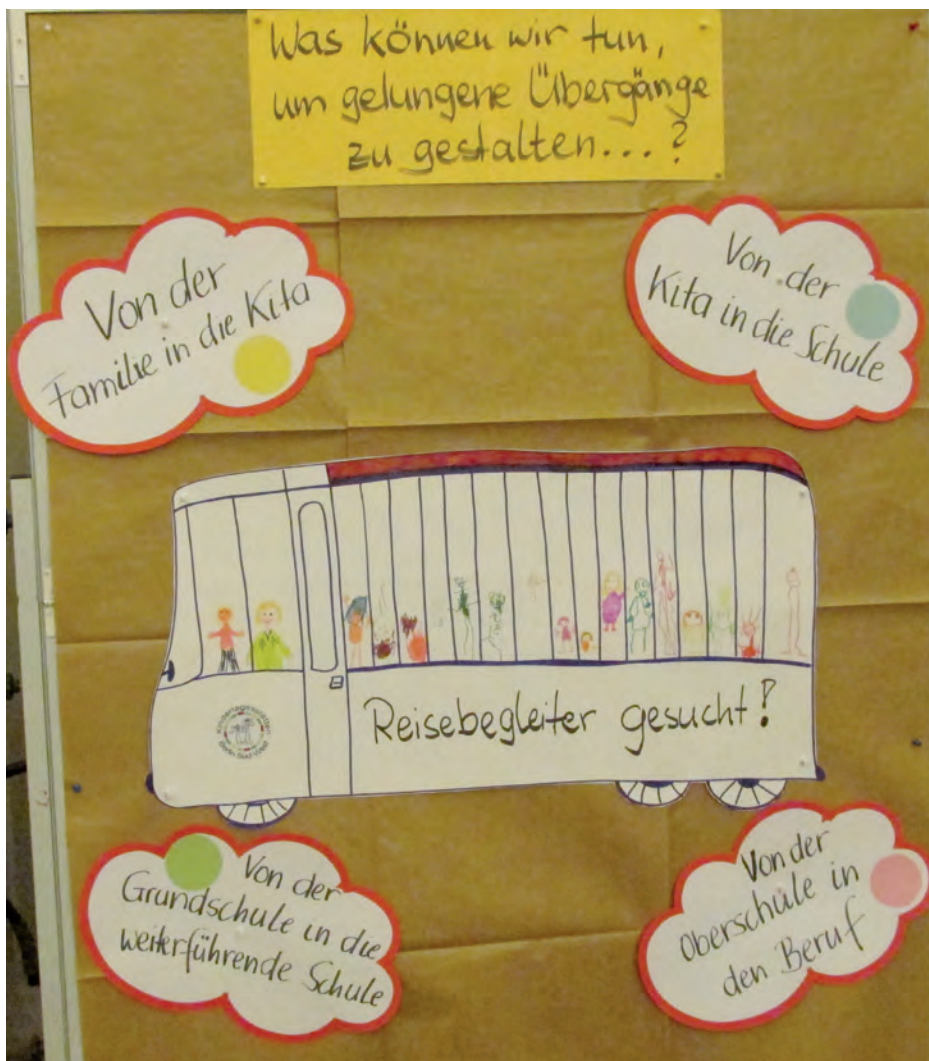 Was können wir tun,
um gelungene Übergänge
zu gestalten...?
Von der
Familie in die Kita
Von der
Kita in die Schule
Reisebegleiter gesucht!
Von der
Grundschule in die
weiterführende Schule
Von der
Oberschule in
den Beruf